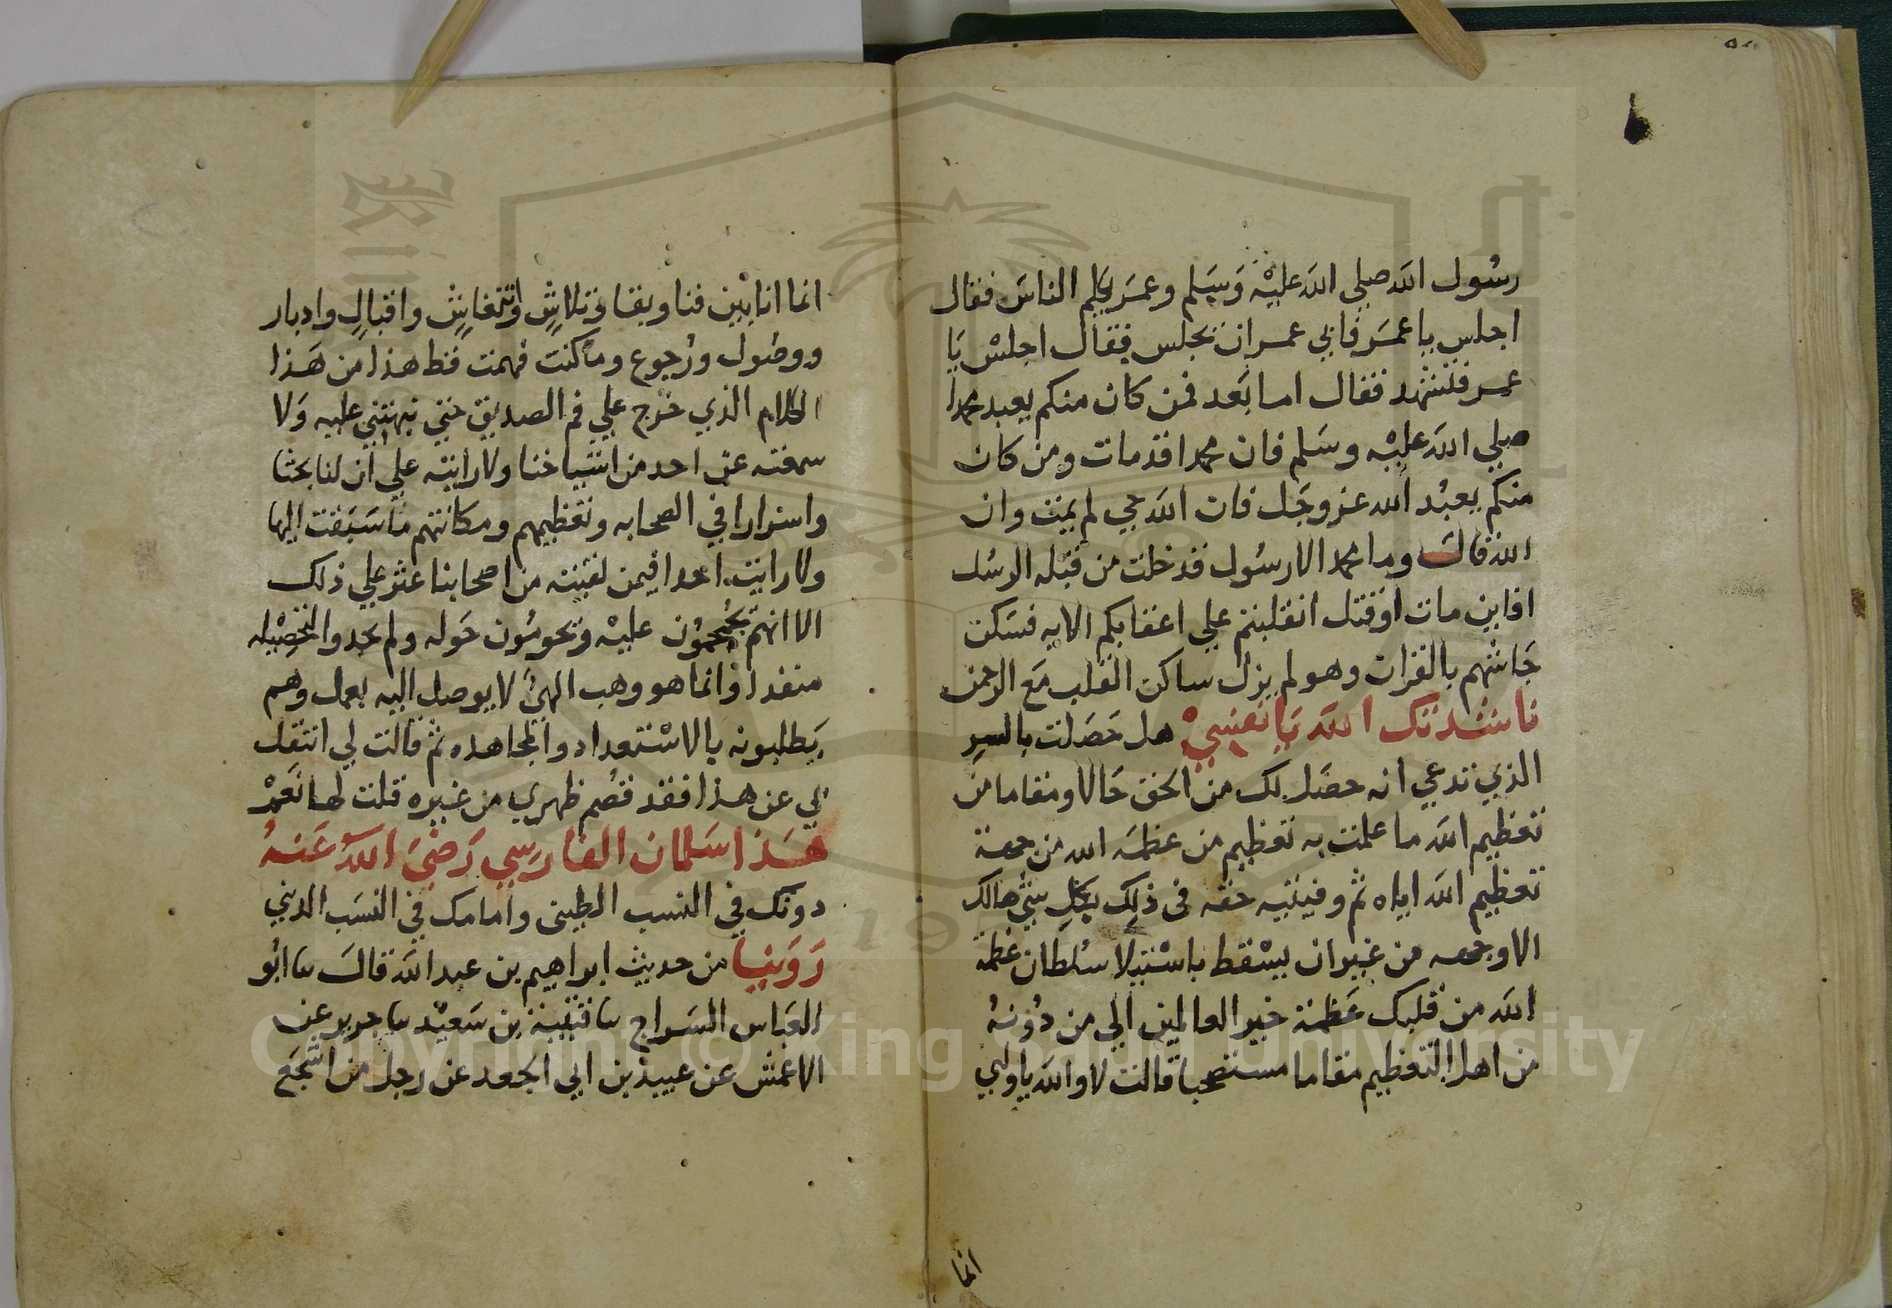 رسُول الله صلي الله عليْه وَسَلم وعمَر يكلم الناسَ فقال
اجلس يا عمَر فابي عمر ان يجلس فقال اجلسْ يَا
عمر فتشهد فقال اما بَعد فمن كان منكم يعبد محمدا
صلي الله عليْه وسَلم فان محمدا قد مات ومن كان
منكم يعبُد الله عز وجَل فان الله حي لم يمت وان
الله قال وما محمد الا رسُول قد خلت من قبْله الرسُل
افاين مات او قتل انقلبتم علي اعقابكم الايه فسَكن
جَاشهم بالقران وهو لم يزل ساكن القلب مَع الرحمن
ناشدتك الله يَا نفسِيْ هل حَصَلت بالسر
الذي تدعي انه حصَل لك من الحق حَالا ومقاما من
تعظيم الله ما علمت به تعظيم من عظمَه الله من جهة
تعظيم الله اياه ثم وفيتيه حقه في ذلك بكل شي هالك
الا وجهه من غير ان يسْقط باسْتيلا سُلطان عظمة
الله من قلبك عَظمة خير العالمين الي من دُونهُ
من اهل التعظيم مقاما مستصحبا قالت لا والله يا وليي
انما
انما انا بيْن فنا وبقا وتلاشٍ وانتعاشٍ واقبالٍ وادبار
ووصُول ورُجوع وما كنت فهمت قط هذا من هَذا
الكلام الذي خرج علي فم الصديق حتي نبهتني عليه وَلا
سمعته عن احد من اشياخنا ولا رايته علي ان لنا بحثا
واسرارا في الصحابه وتعظيمهم ومكانتهم ما سَبَقت اليها
ولا رايت احدا فيمن لقيته من اصحابنا عثر علي ذلك
الا انهم يحُمحمُون عليْه ويَحومُون حَوله ولم يجدوا لتحصْيله
منفدا وانما هو وهب الهيٌ لا يوصل اليه بعمل وهم
يَطلبونه بالاسْتعداد والمجاهده ثم قالت لي انتقل
بي عن هذا فقد قصم ظهري من غيره قلت لها نَعَمْ
هَذا سَلمان الفارسِي رَضيَ اللهُ عَنهُ
دونك في النسب الطيني وامامك في النسَب الديني
رَوَينا من حديث ابراهيم بن عبد الله قالَ ثنا ابُو
العَباس السَراج ثنا قتيبَة بن سَعيْد ثنا جرير عن
الاعمش عن عبيد بن ابي الجعد عن رجل من اشجَع